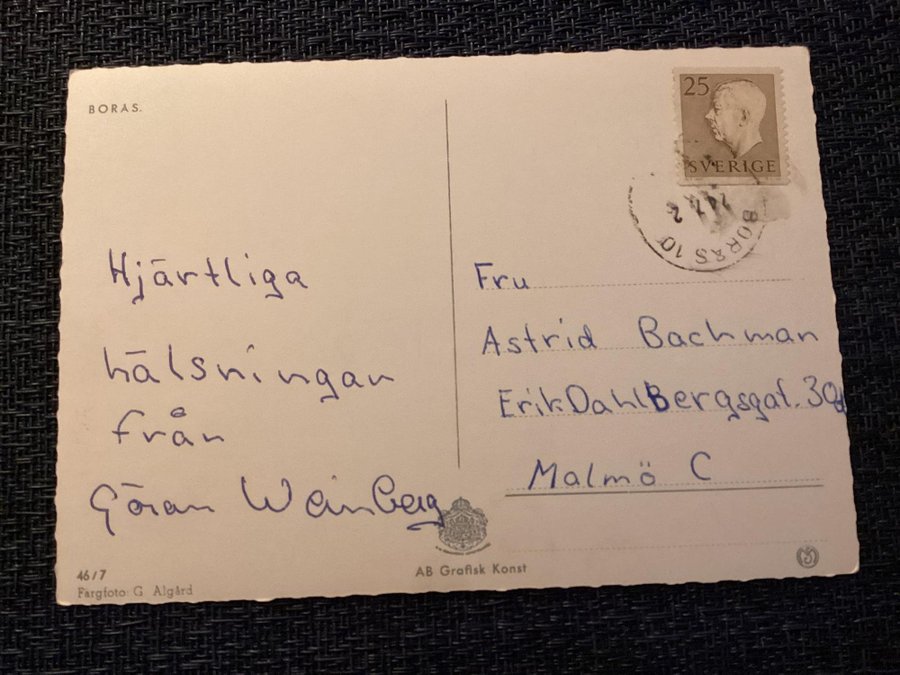 BORÅS.
25
SVERIGE
BORÅS 10
Hjärtliga
hälsningar
från
Göran Weinberg
Fru
Astrid Bachman
Erik DahlBergsgat. 30
Malmö C
46/7
Färgfoto: G Algård
AB Grafisk Konst